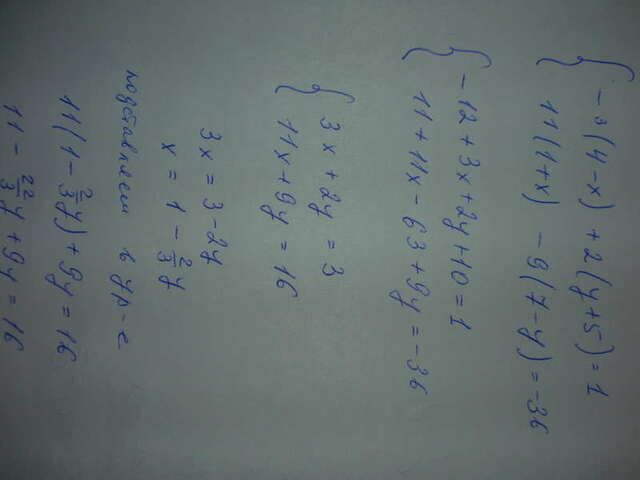 -3(4-x) + 2(y+5) = 1
11(1+x) - 9(7-y) = -36
-12 + 3x + 2y + 10 = 1
11 + 11x - 63 + 9y = -36
3x + 2y = 3
11x + 9y = 16
3x = 3 - 2y
x = 1 - 2/3 y
подставляем в ур-е
11(1 - 2/3 y) + 9y = 16
11 - 22/3 y + 9y = 16